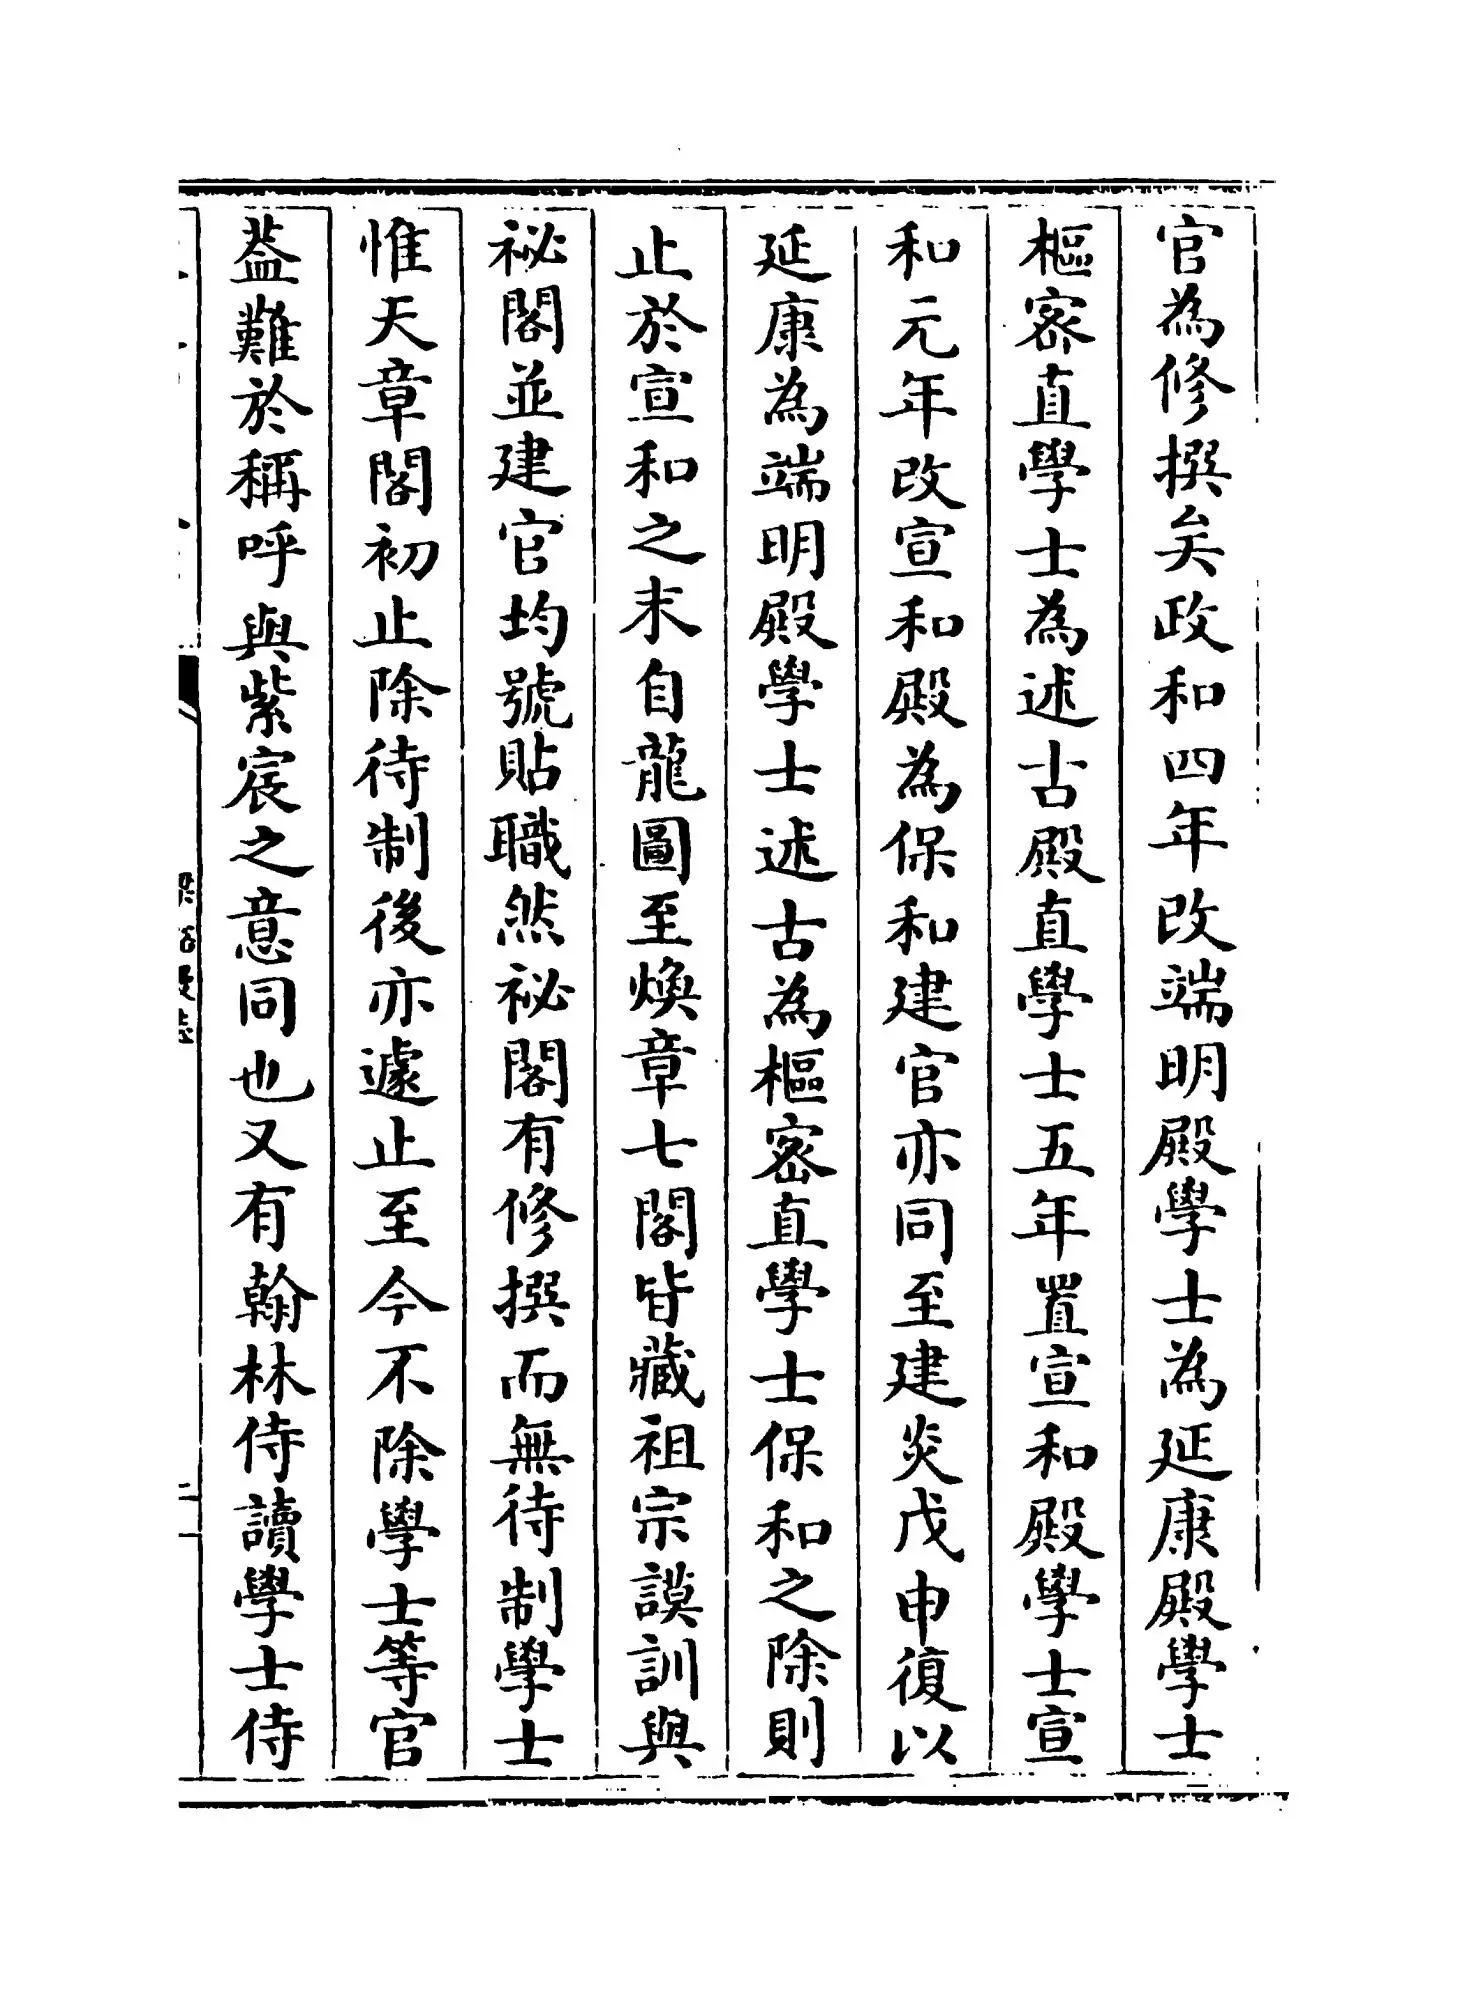 官為修撰矣政和四年改端明殿學士為延康殿學士
樞密直學士為述古殿直學士五年置宣和殿學士宣
和元年改宣和殿為保和建官亦同至建炎戊申復以
延康為端明殿學士述古為樞密直學士保和之除則
止於宣和之末自龍圖至煥章七閣皆藏祖宗謨訓與
祕閣並建官均號貼職然祕閣有修撰而無待制學士
惟天章閣初止除待制後亦遽止至今不除學士等官
葢難於稱呼與紫宸之意同也又有翰林侍讀學士侍
梁谿漫志
二